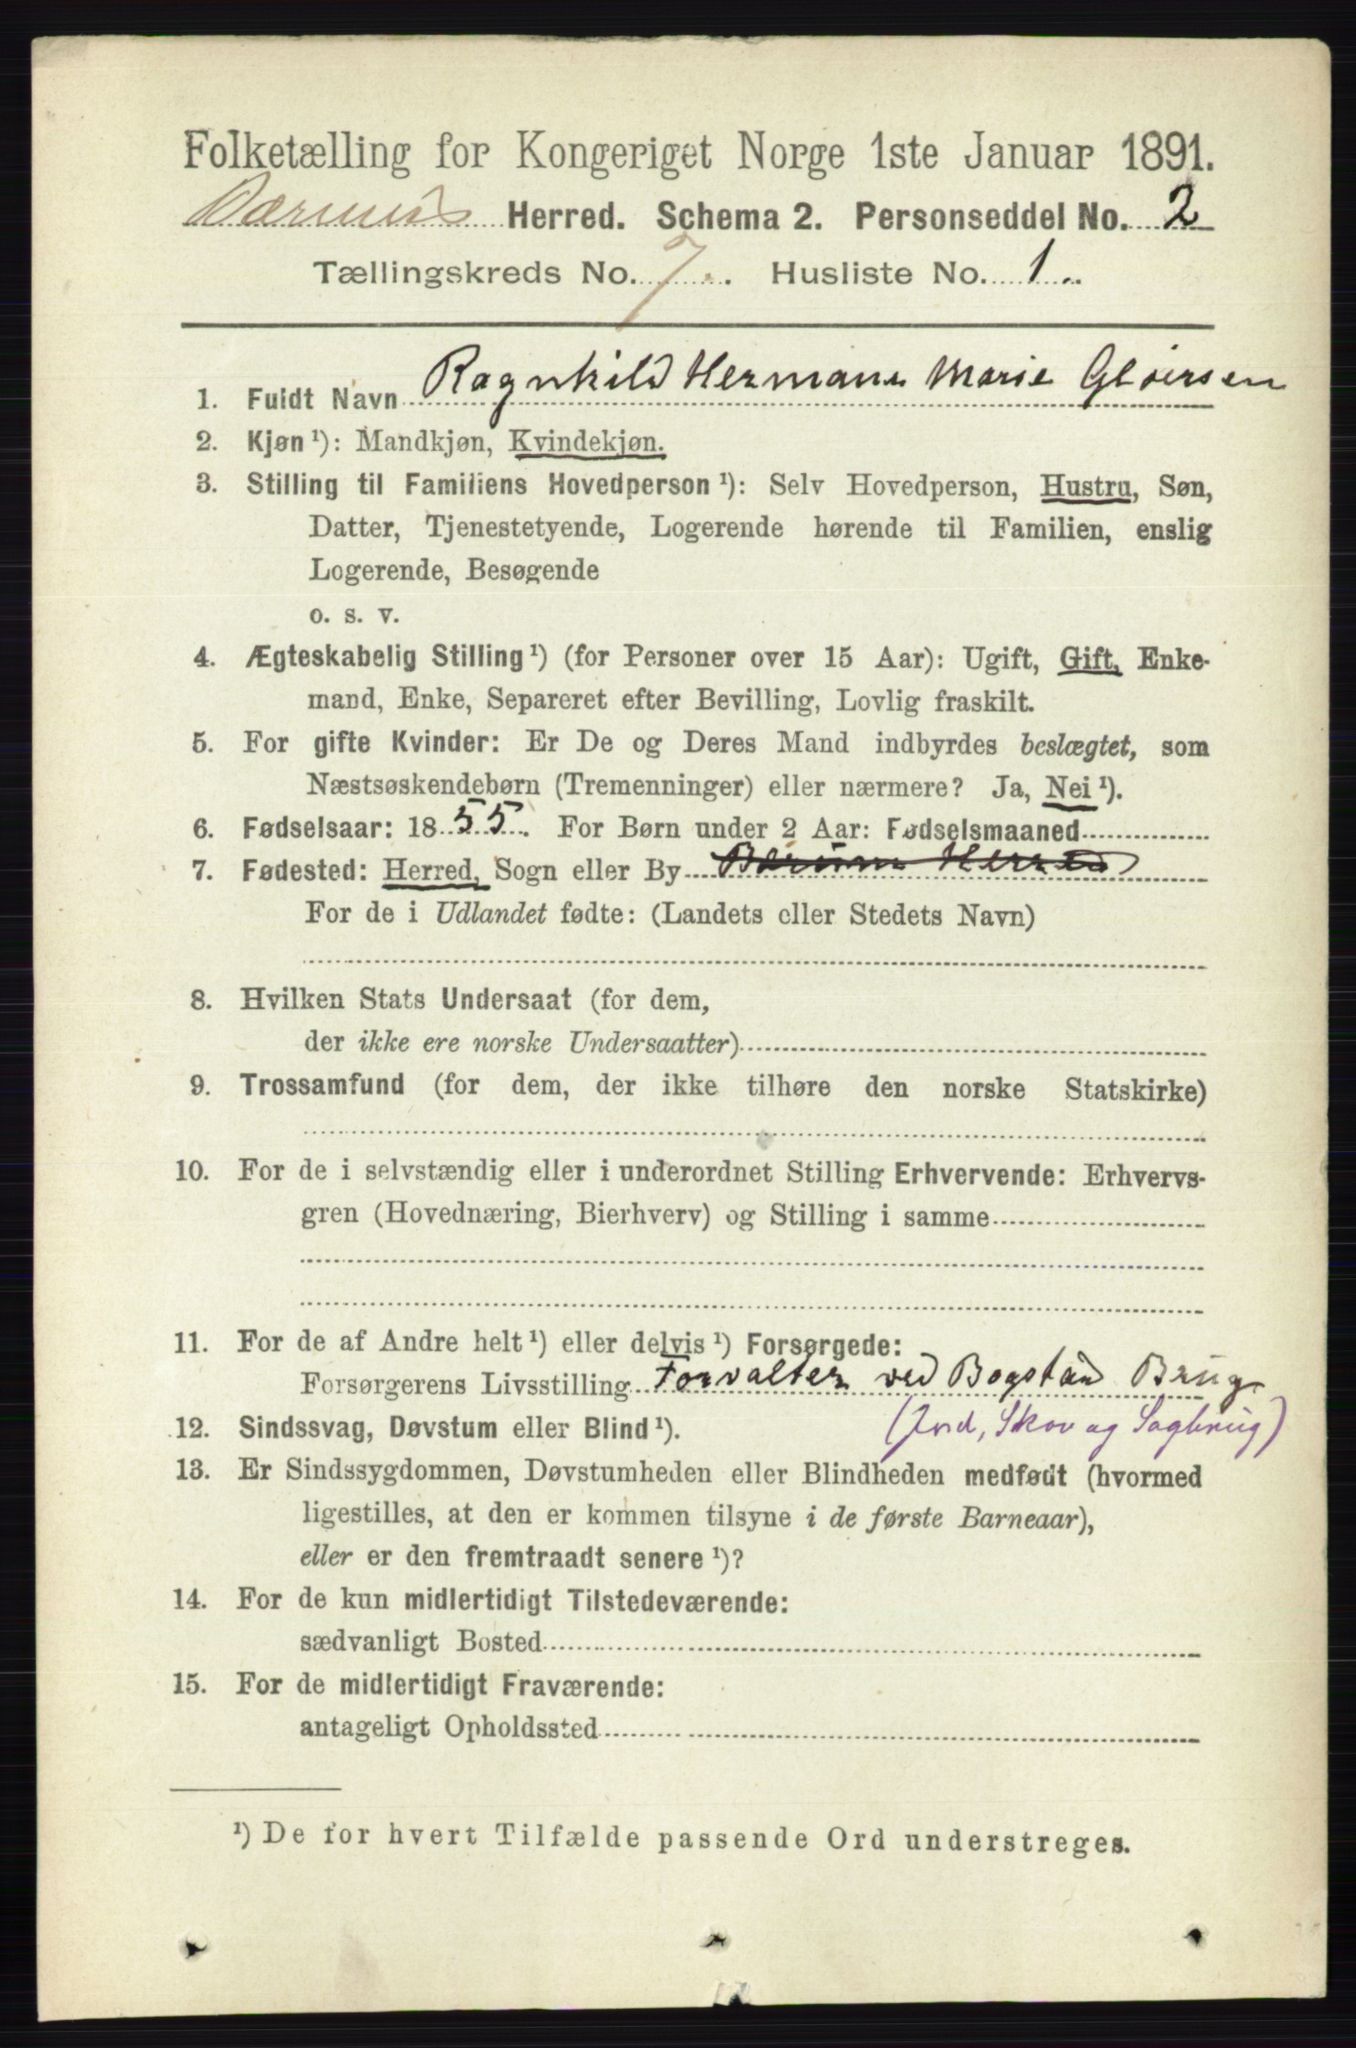 Folketælling for Kongeriget Norge 1ste Januar 1891.
Bærums Herred. Schema 2. Personseddel No. 2
Tællingskreds No. 7. Husliste No. 1.
1. Fuldt Navn Ragnhild Hermane Marie Gløersen
2. Kjøn ¹): Mandkjøn, Kvindekjøn.
3. Stilling til Familiens Hovedperson ¹): Selv Hovedperson, Hustru, Søn,
Datter, Tjenestetyende, Logerende hørende til Familien, enslig
Logerende, Besøgende
o. s. v.
4. Ægteskabelig Stilling ¹) (for Personer over 15 Aar): Ugift, Gift, Enke-
mand, Enke, Separeret efter Bevilling, Lovlig fraskilt.
5. For gifte Kvinder: Er De og Deres Mand indbyrdes beslægtet, som
Næstsøskendebørn (Tremenninger) eller nærmere? Ja, Nei ¹).
6. Fødselsaar: 1855. For Børn under 2 Aar: Fødselsmaaned
7. Fødested: Herred, Sogn eller By Bærum Herred
For de i Udlandet fødte: (Landets eller Stedets Navn)
8. Hvilken Stats Undersaat (for dem,
der ikke ere norske Undersaatter)
9. Trossamfund (for dem, der ikke tilhøre den norske Statskirke)
10. For de i selvstændig eller i underordnet Stilling Erhvervende: Erhvervs-
gren (Hovednæring, Bierhverv) og Stilling i samme
11. For de af Andre helt ¹) eller delvis ¹) Forsørgede:
Forsørgerens Livsstilling Forvalter ved Bogstad Brug
(Jord, Skov og Sagbrug)
12. Sindssvag, Døvstum eller Blind ¹).
13. Er Sindssygdommen, Døvstumheden eller Blindheden medfødt (hvormed
ligestilles, at den er kommen tilsyne i de første Barneaar),
eller er den fremtraadt senere ¹)?
14. For de kun midlertidigt Tilstedeværende:
sædvanligt Bosted
15. For de midlertidigt Fraværende:
antageligt Opholdssted
¹) De for hvert Tilfælde passende Ord understreges.